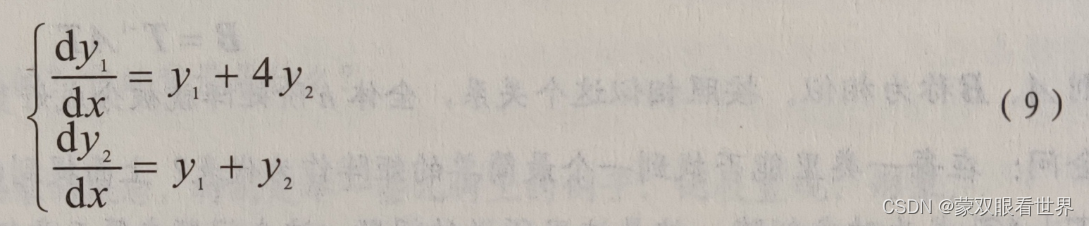 dy₁/dx = y₁ + 4y₂ (9)
dy₂/dx = y₁ + y₂
CSDN @蒙双眼看世界